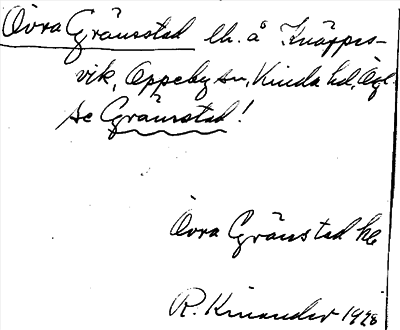 Övra Gränsstad lh. å Knäpps-
vik, Oppeby sn, Kinda hd, Ögl.
Se Gränsstad!
Övra Gränstad hl
R. Kinander 1928